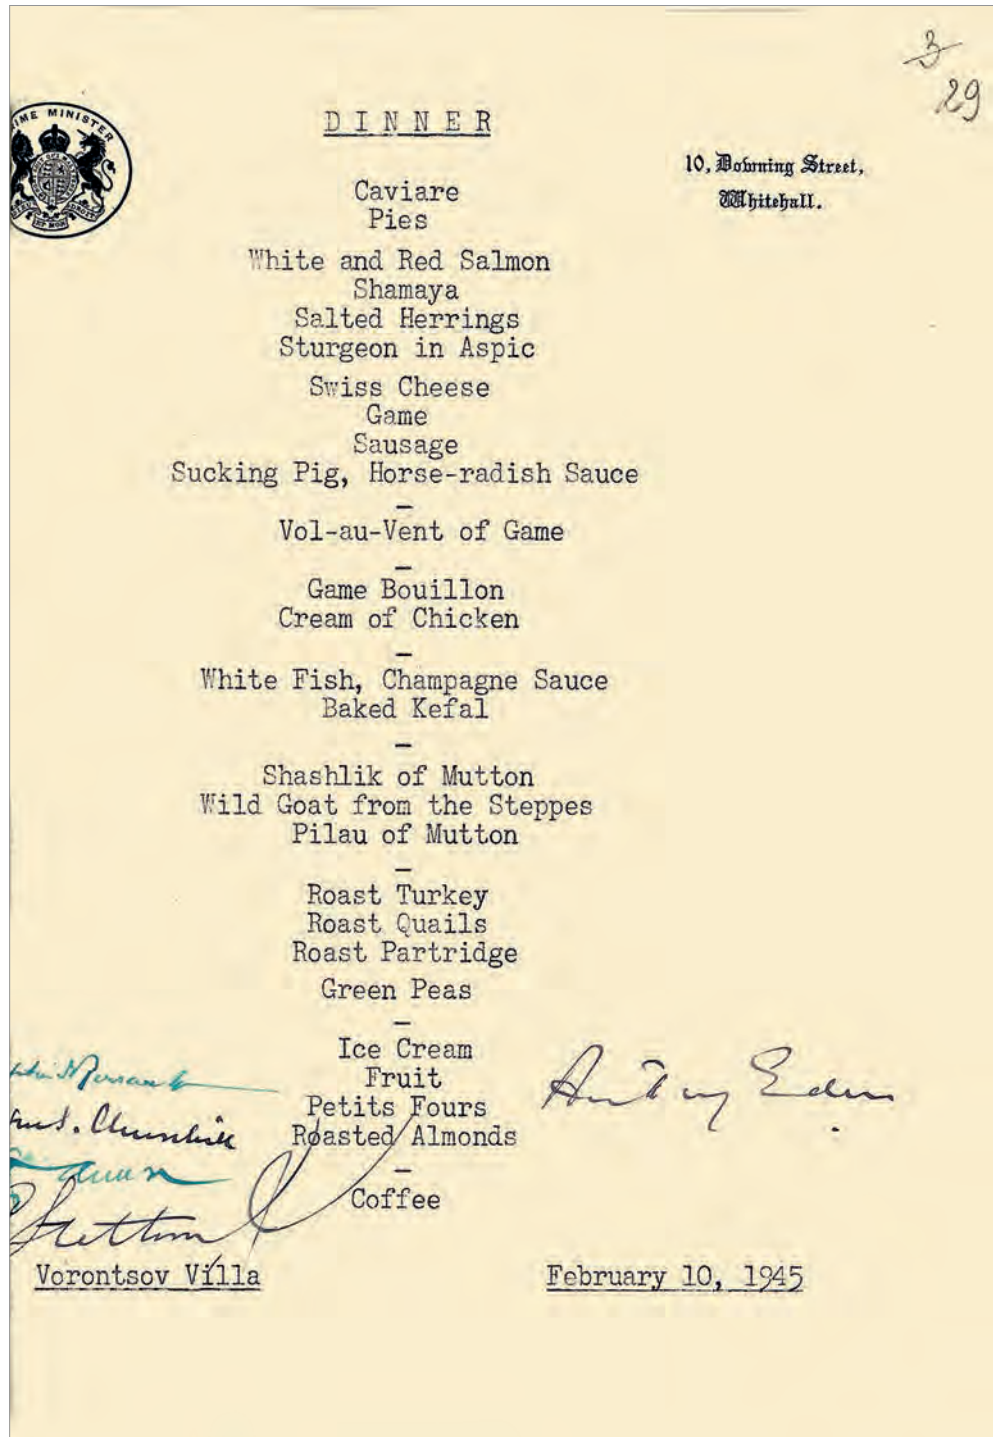 3
29
PRIME MINISTER
DINNER
10, Downing Street,
Whitehall.
Caviare
Pies
White and Red Salmon
Shamaya
Salted Herrings
Sturgeon in Aspic
Swiss Cheese
Game
Sausage
Sucking Pig, Horse-radish Sauce
—
Vol-au-Vent of Game
—
Game Bouillon
Cream of Chicken
—
White Fish, Champagne Sauce
Baked Kefal
—
Shashlik of Mutton
Wild Goat from the Steppes
Pilau of Mutton
—
Roast Turkey
Roast Quails
Roast Partridge
Green Peas
—
Ice Cream
Fruit
Petits Fours
Roasted Almonds
—
Coffee
Anthony Eden
S. Churchill
Vorontsov Villa
February 10, 1945